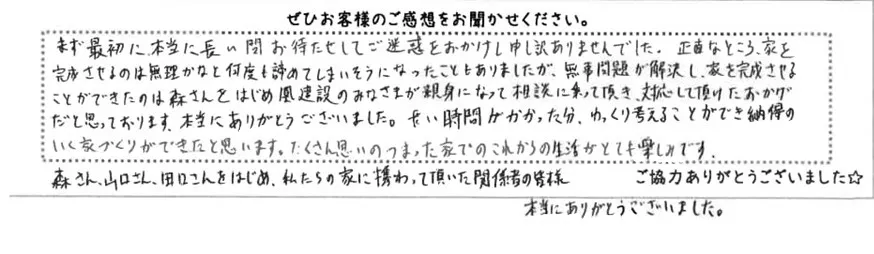 ぜひお客様のご感想をお聞かせください。
まず最初に、本当に長い間お待たせしてご迷惑をおかけし申し訳ありませんでした。正直なところ、家を
完成させるのは無理かなと何度も諦めてしまいそうになったこともありましたが、無事問題が解決し、家を完成させる
ことができたのは森さんをはじめ凰建設のみなさまが親身になって相談に乗って頂き、対応して頂けたおかげ
だと思っております。本当にありがとうございました。長い時間がかかった分、ゆっくり考えることができ納得の
いく家づくりができたと思います。たくさん思いのつまった家でのこれからの生活がとても楽しみです。
森さん、山口さん、田口さんをはじめ、私たちの家に携わって頂いた関係者の皆様
ご協力ありがとうございました☆
本当にありがとうございました。